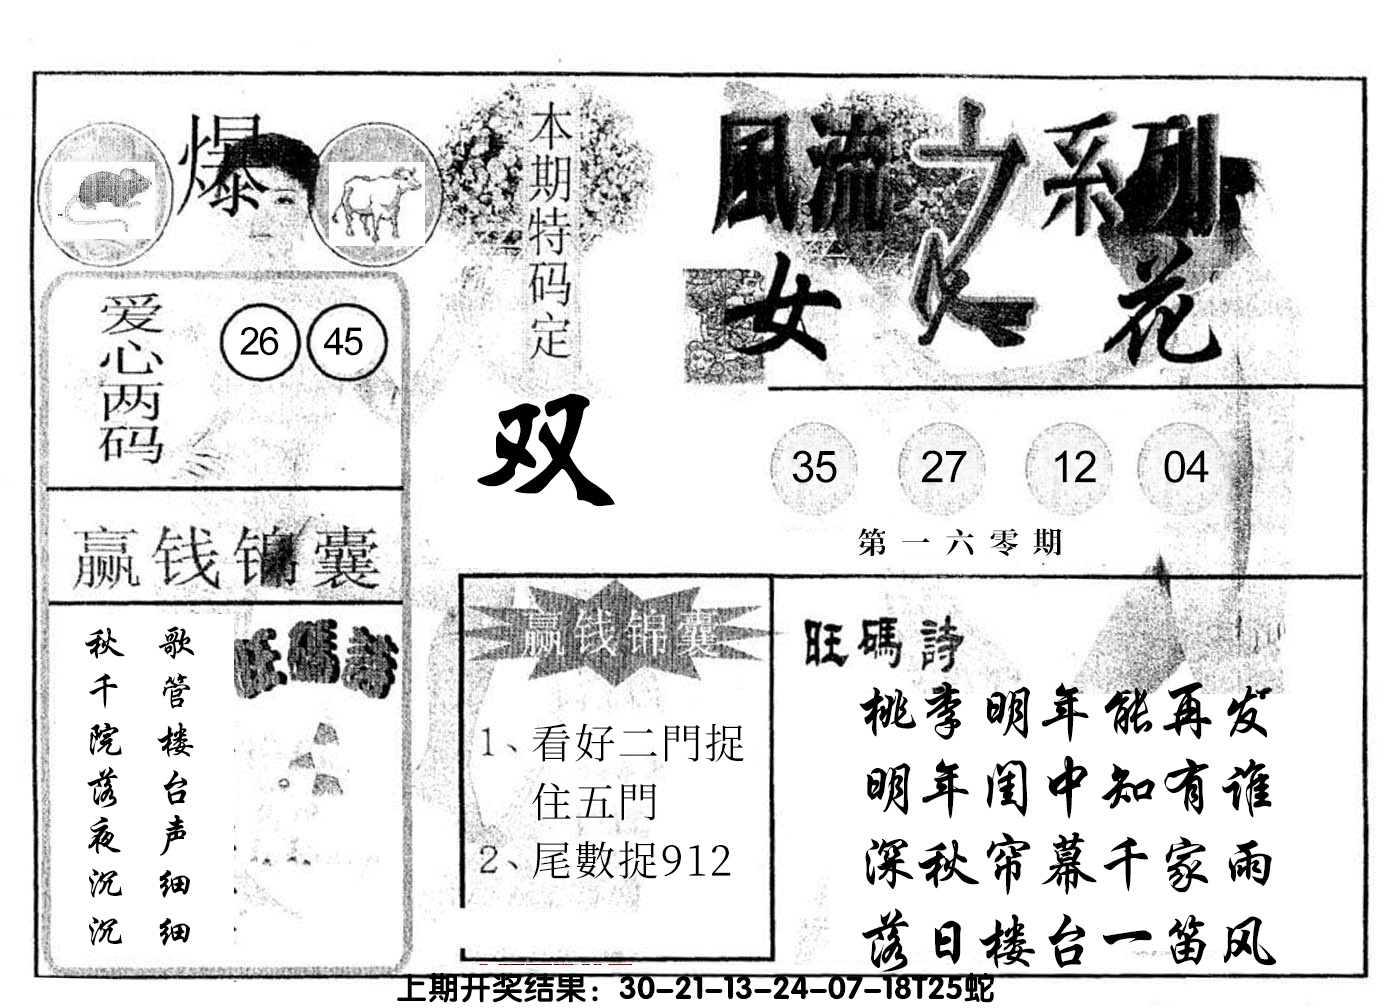 爆
爱心两码
26 45
赢钱锦囊
歌管楼台声细细
秋千院落夜沉沉
旺碼詩
本期特码定
双
風流之系列
女人花
35 27 12 04
第一六零期
赢钱锦囊
1、看好二門捉
住五門
2、尾數捉912
旺碼詩
桃李明年能再发
明年闺中知有谁
深秋帘幕千家雨
落日楼台一笛风
上期开奖结果：30-21-13-24-07-18T25蛇